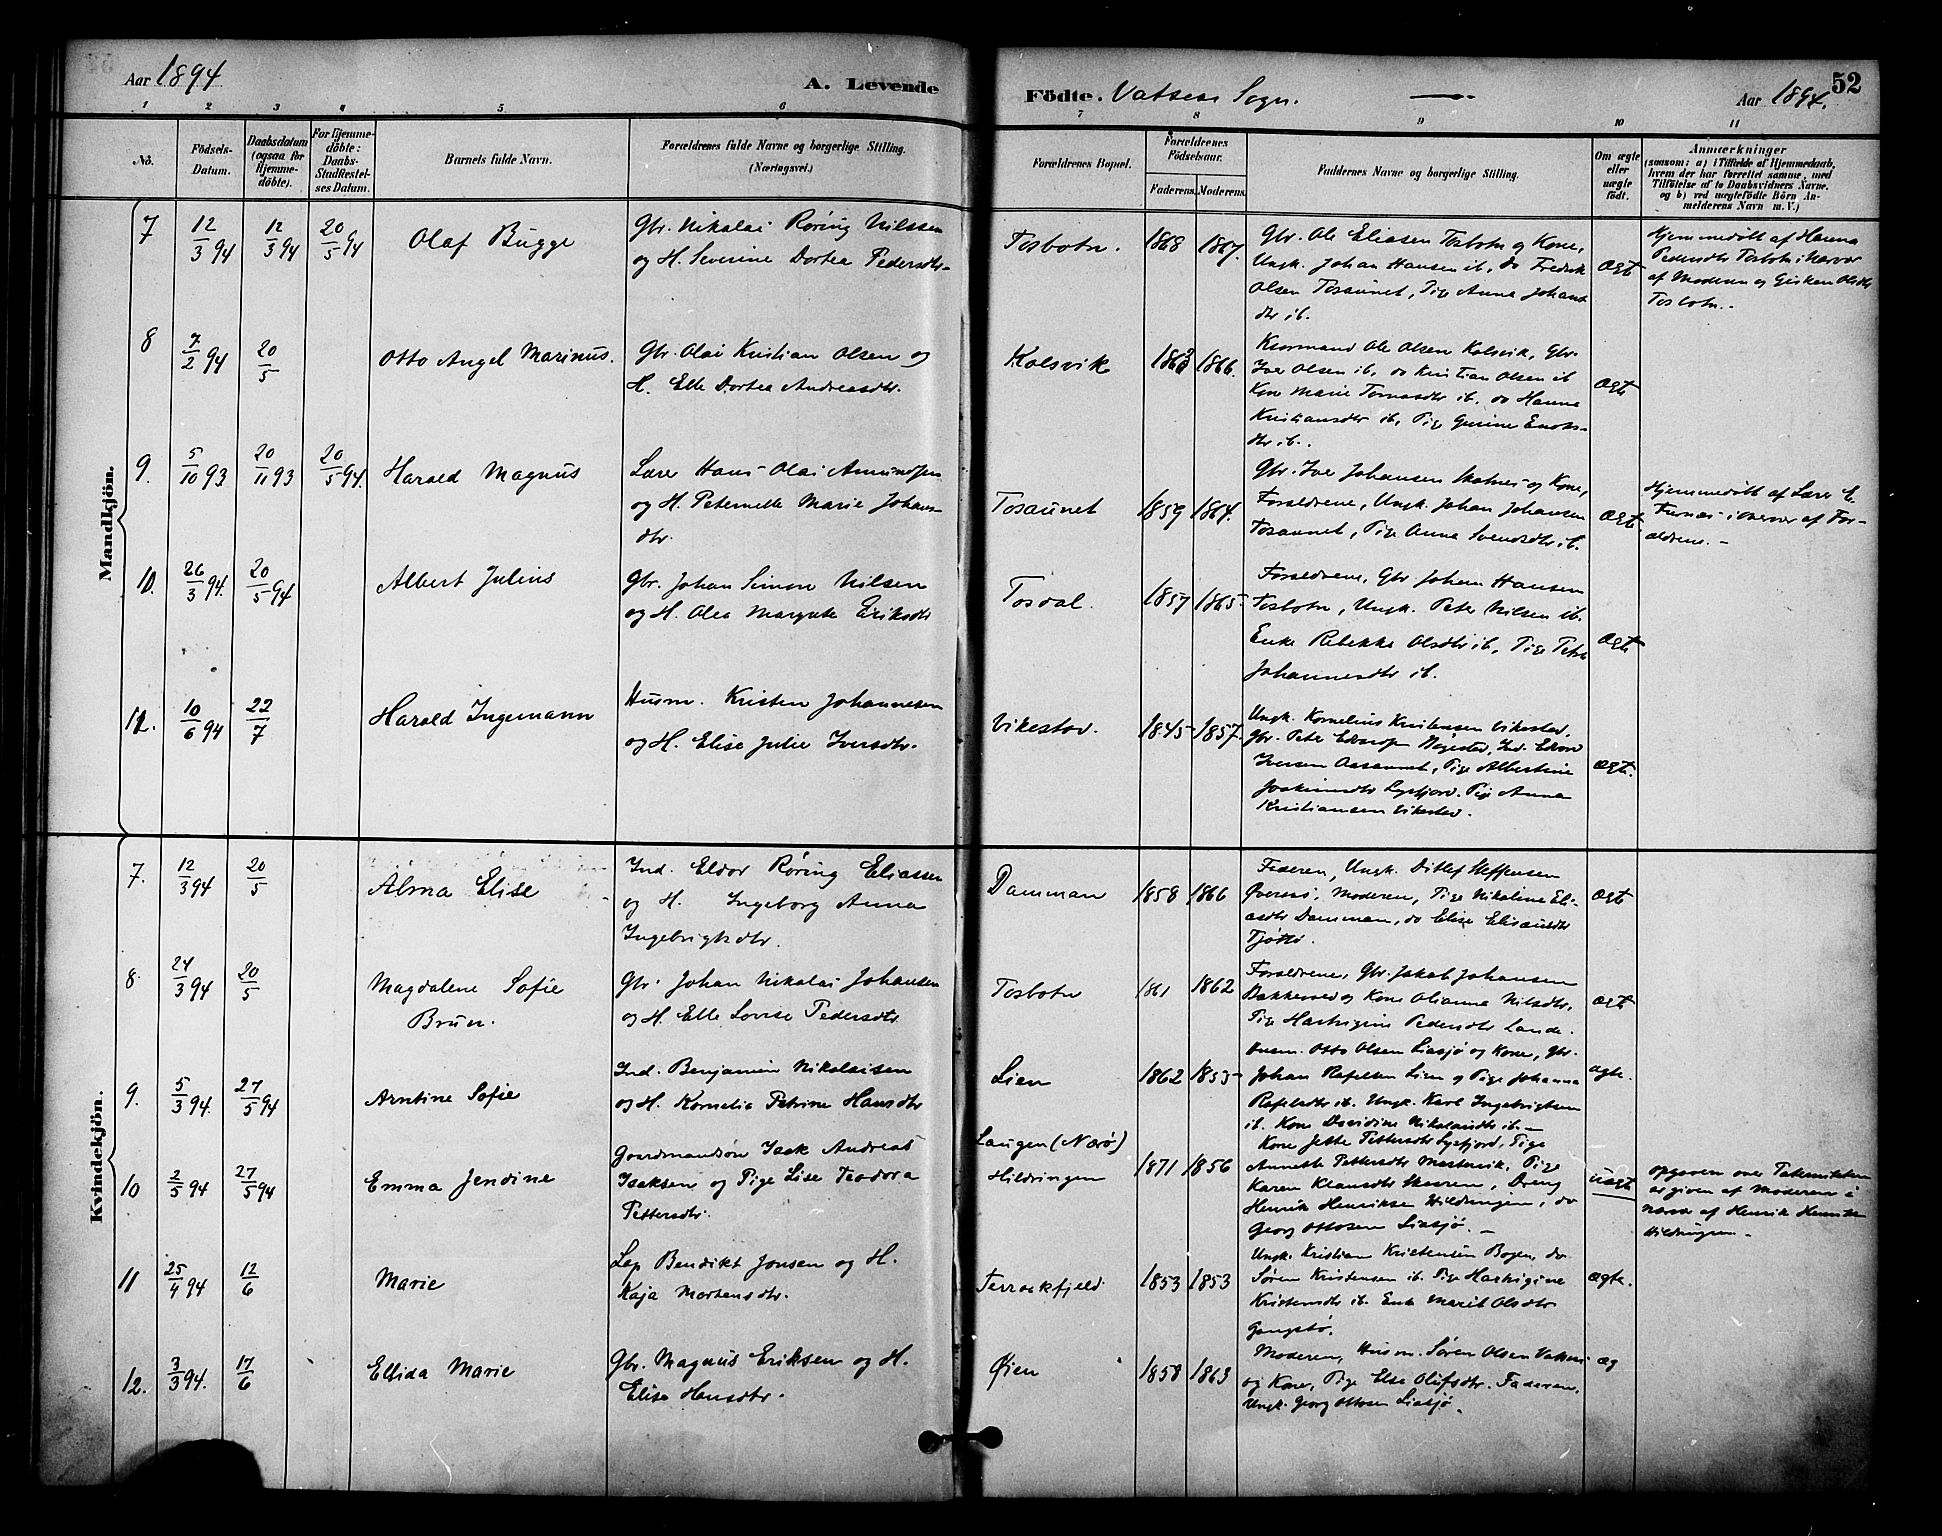 Aar 1894
A. Levende
1 2 3 4 5 6
No.
Födsels-Datum.
Daabsdatum (ogsaa for Hjemme-döbte).
For Hjemme-döbte: Daabs-Stadfæstel-ses Datum.
Barnets fulde Navn.
Forældrenes fulde Navne og borgerlige Stilling.
(Næringsvei.)
Mandkjön.
7 12/3 94 12/3 94 20/5 94 Olaf Bugge
Gbr. Nikolai Røring Nilssen
og H. Severine Dortea Pedersdtr.
8 7/2 94 20/5 Otto Angel Marinus.
Gbr. Olai Kristian Olsen og
H. Elle Dortea Andreasdtr.
9. 5/10 93 20/11 93 20/5 94. Harald Magnus
Lærer Hans Olai Amundsen
og H. Peternelle Marie Johans-
dtr.
10. 26/3 94. 20/5 94 Albert Julius
Gbr. Johan Simon Nilsen
og H. Olea Margrete Eriksdtr
12. 10/6 94 22/7 Harald Ingemann
Husm. Kristen Johannesen
og H. Elise Julie Iversdtr.
Kvindekjön.
7. 12/3 94 20/5 Alma Elise
Ind. Eldor Røring Eliassen
og H. Ingeborg Anna
Ingebrigtsdtr.
8. 24/3 94 20/5 Magdalene Sofie
Brun.
Gbr. Johan Nikolai Johansen
og H. Elle Lovise Pedersdtr
9. 5/3 94. 27/5 94 Arntine Sofie
Ind. Benjamin Nikolaisen
og H. Kornelia Petrine Hansdtr
10 2/5 94 27/5 94 Emma Jendine
Gaardmandsøn Isak Andreas
Isaksen og Pige Lise Teodora
Pettersdtr.
11 25/4 94 12/6 Marie
Lap Bendikt Jonsen og H.
Kaja Mortensdtr.
12. 3/3 94. 17/6 Ellida Marie
Gbr. Magnus Eriksen og H.
Elise Hansdtr.
Födte. Vatsens Sogn.
Aar 1894.
52
7 8 9 10 11
Forældrenes Bopæl.
Forældrenes Födselsaar.
Faderens. Moderens.
Faddernes Navne og borgerlige Stilling.
Om ægte eller uægte födt.
Anmærkninger
(saasom: a) i Tilfælde af Hjemmedaab,
hvem der har forrettet samme, med
Tilföielse af to Daabsvidners Navne.
og b) ved uægtefödte Börn An-
melderens Navn m. V.)
Tosbotn. 1868 1867.
Gbr. Ole Eliasen Tosbotn og Kone,
Ungk. Johan Hansen ib, do Fredrik
Olsen Tosaunet, Pige Anna Johans
dtr ib.
Ægt
Hjemmedøbt af Hanna
Pedersdtr Tosbotn i Nærvær
af Moderen og Gisken Olsdtr
Tosbotn.
Kolsvik 1863 1866.
Kirkesanger Ole Olsen Kolsvik, Gbr.
Iver Olsen ib, do Kristian Olsen ib
Kone Marie Tomasdtr ib. do Hanna
Kristiansdtr ib, Pige Gurine Enoks-
dtr ib.
Ægt
Tosaunet 1859 1864.
Gbr. Iver Johansen og Kone,
Forældrene, Ungk. Johan Johansen
Tosaunet, Pige Anna Svendsdtr ib.
Ægt
Hjemmedøbt af Lærer E.
Furnes i Nærvær af For-
ældrene.
Tosdal. 1857 1865
Forældrene, Gbr Johan Hansen
Tosbotn, Ungk. Peter Nilsen ib.
Enke Rebekka Olsdtr ib, Pige Petra
Johannesdtr ib.
Ægt
Vikestad. 1845 1857
Ungk. Kornelius Kristensen Vikestad,
Gbr. Peter Edvardsen, Ind. Edvard
Iversen Aasaunet, Pige Albertine
Joakimsdtr Lysfjord. Pige Anna
Kristiansen Vikestad.
Ægt.
Damman 1858 1866
Faderen, Ungk. Ditlef Steffensen
Øverens, Moderen, Pige Nikoline Eli-
asdtr Damman, do Elise Eliasdtr
Tjøttø.
Ægt
Tosbotn 1861 1862
Forældrene, Gbr. Jakob Johansen
Bakkerned og Kone Olianna Nilsdtr,
Pige Hartvigine Pedersdtr Lande.
Ægt
Lien 1862 1853
Husm. Otto Olsen Liasjø og Kone, Gbr.
Johan Rafelsen Lien og Pige Johanna
Rafelsdtr ib. Ungk. Karl Ingebrigtsen
ib. Kone Davidine Nikolaisdtr ib.
Ægte.
Laugen (Nærø)
Hildringen 1871 1856
Kone Jette Pettersdtr Lysfjord, Pige
Annette Pettersdtr, Pige
Karen Klausdtr, Dreng
Henrik Henriksen Hildringen, do
Georg Ottosen Liasjø.
Uægt
Opgaven over
er given af Moderen i
Nærvær af Henrik Henriksen
Hildringen.
Terraokfjeld 1853 1853
Ungk. Kristian Kristensen Bogen, do
Søren Kristensen ib. Pige Hartvigine
Kristensdtr ib. Enke Marit Olsdtr
Gangstø.
Ægte.
Øien 1858 1863
Moderen, Husm. Søren Olsen
og Kone, Pige Else Olufsdtr. Faderen,
Ungk. Georg Ottosen Liasjø.
Æg